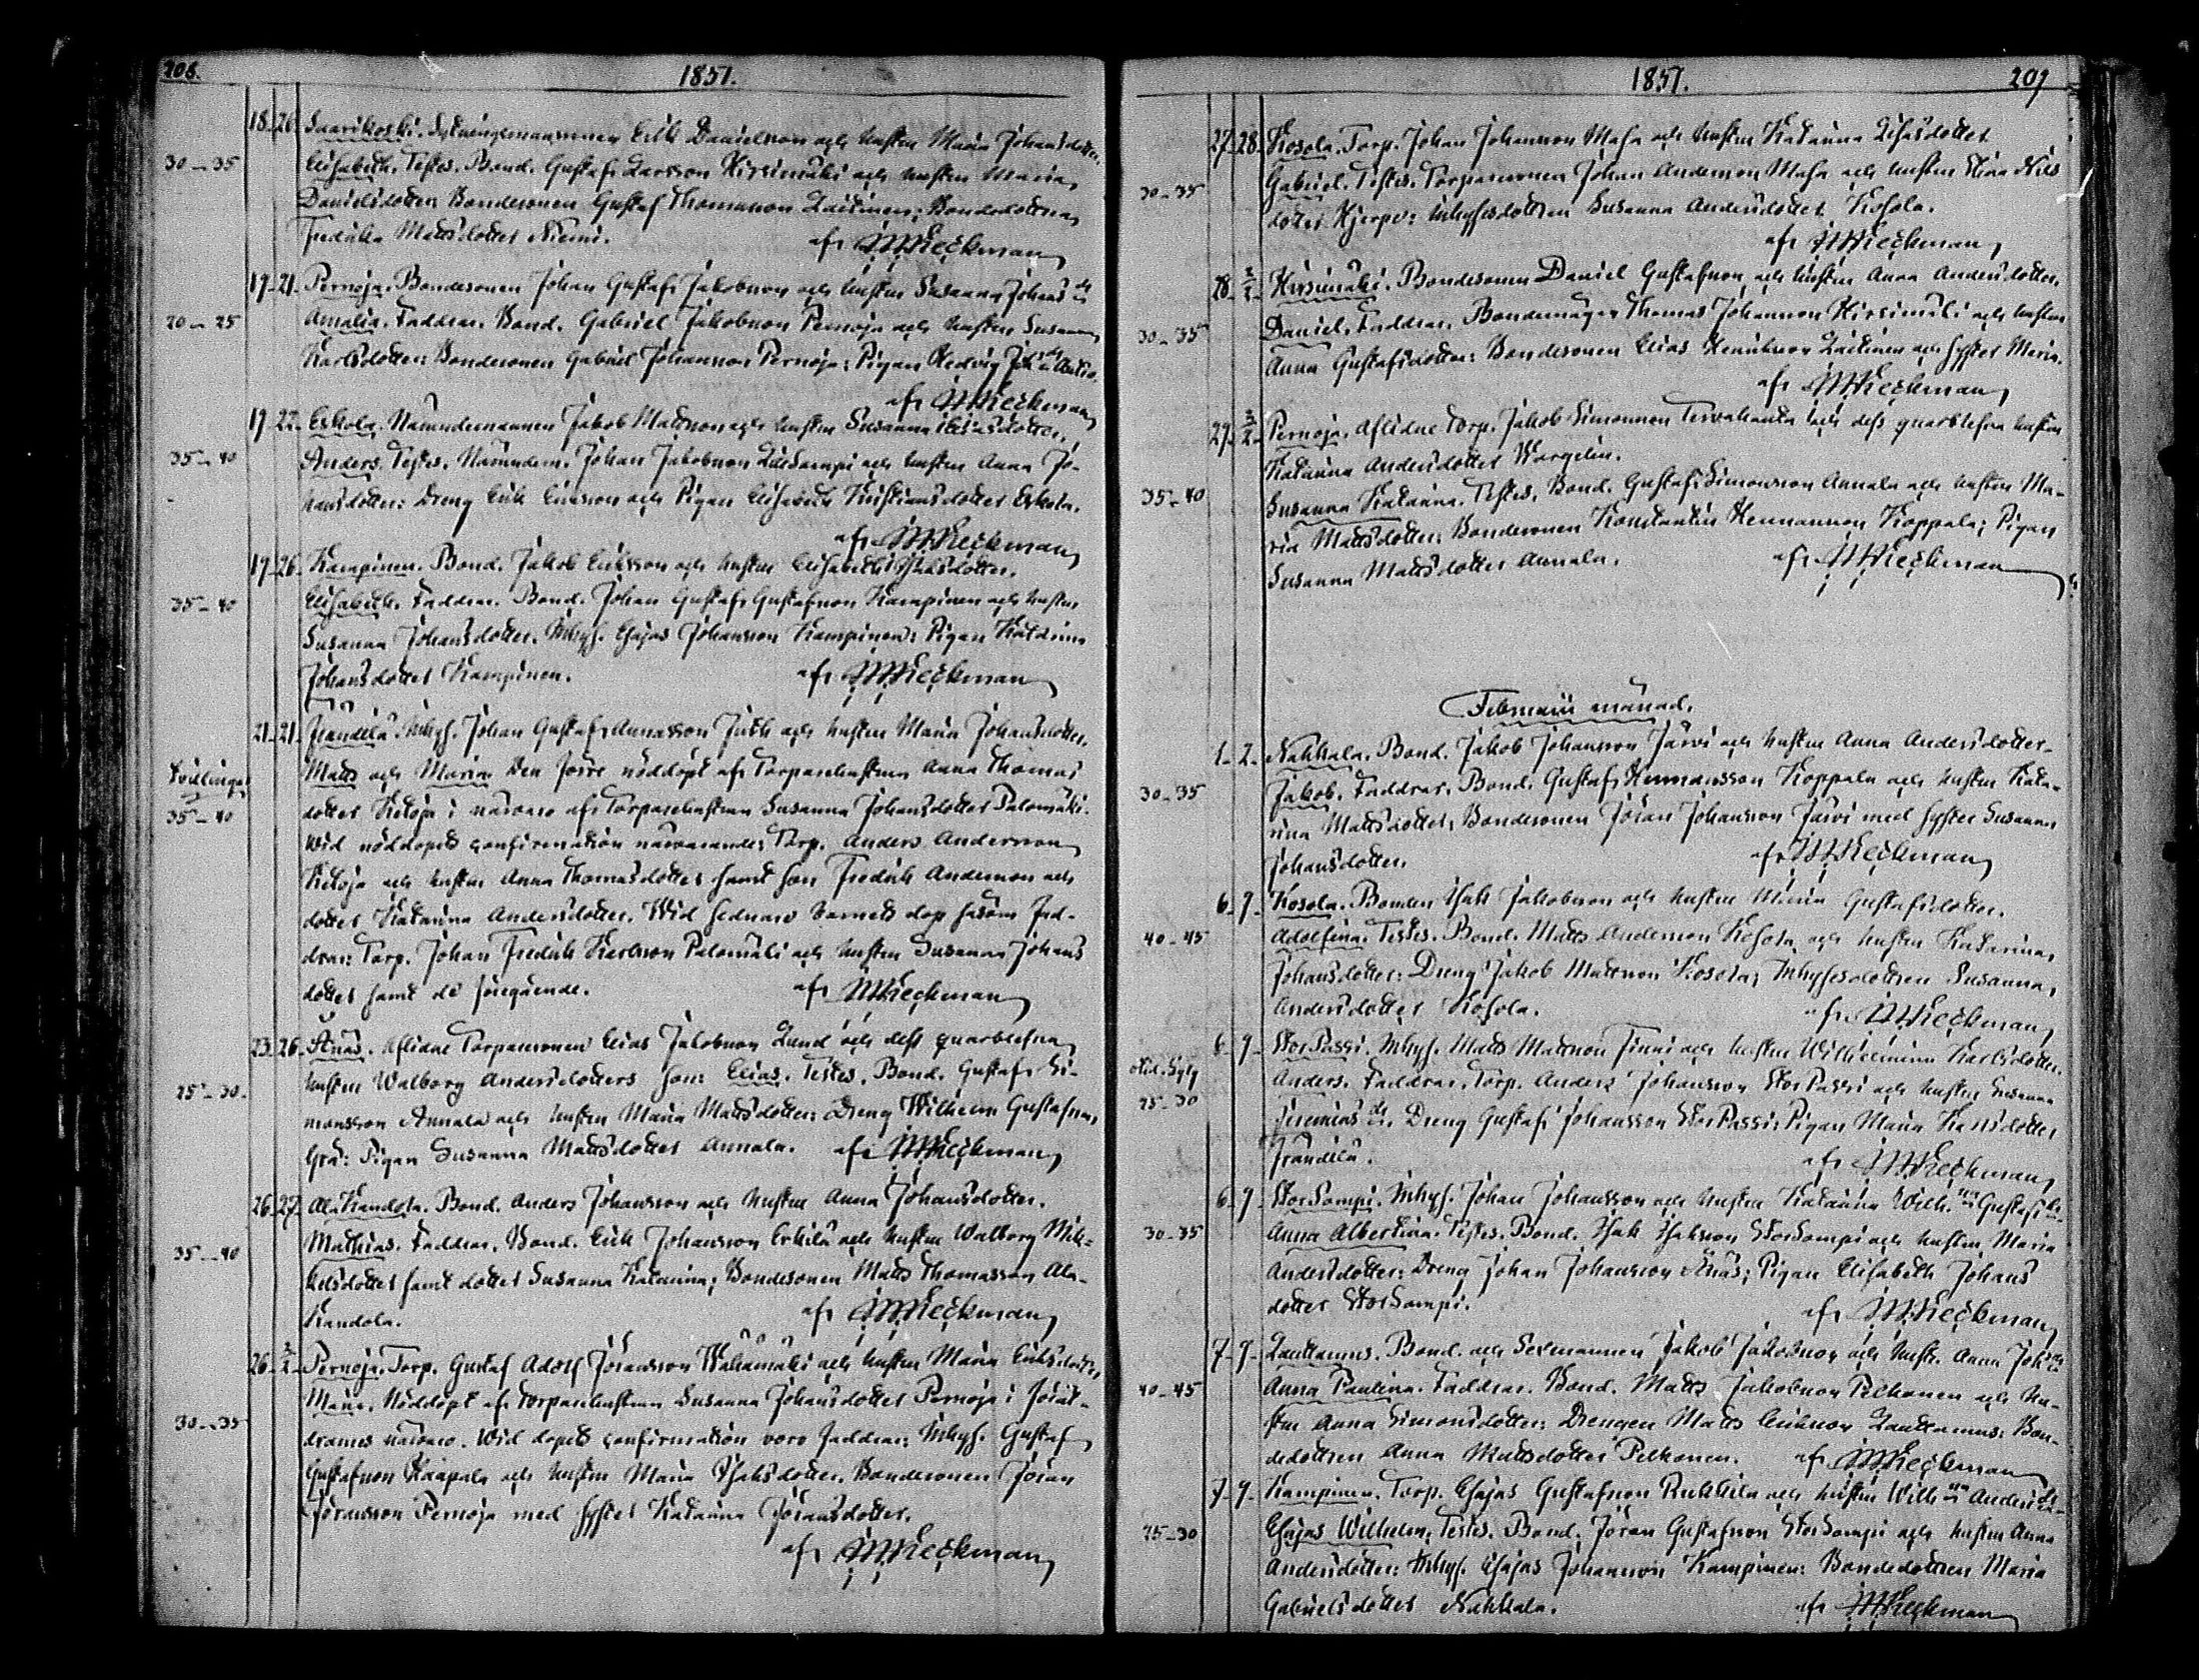 208.
1851.
18. 20. Saarikoski. Erik Danielsson och hustru Maria Johansdotter.
30–35 Elisabeth. Testes. Bond. Gustaf Larsson Hirsimäki och hustru Maria
Danielsdotter; Bondesonen Gustaf Thomasson Laitinen; Bondedottren
Fredrika Mattsdotter Niemi. af
19. 21. Pernoja. Bondesonen Johan Gustaf Jakobsson och hustru Susanna Johansdr
20–25 Amalia. Faddrar. Bond. Gabriel Jakobsson Pernoja och hustru Susanna
Karlsdotter: Bondesonen Gabriel Johansson Pernoja: Pigan Hedvig
af
19. 22. Eskola. Nämndemannen Jakob Mattsson och hustru Susanna Eliasdotter,
35–40 Anders. Testes. Nämndem. Johan Jakobsson och hustru Anna Jo-
hansdotter: Dreng Erik Eriksson och Pigan Elisabeth Kristiansdotter Eskola.
af
19. 26. Kampinen. Bond. Jakob Eriksson och hustru Elisabeth Isaksdotter.
35–40 Elisabeth. Faddrar. Bond. Johan Gustaf Gustafsson Kampinen och hustru
Susanna Johansdotter. Inhys. Esajas Johansson Kampinen: Pigan Katarina
Johansdotter Kampinen. af
21. 21. Frändilä. Inhys. Johan Gustaf Annasson och hustru Maria Johansdotter.
Tvillingar Matts och Maria. Den förre nöddöpt af Torparehustrun Anna Thomas
35–40 dotter Ketoja i närvaro af Torparehustrun Susanna Johansdotter Palomäki.
Wid nöddopets confirmation närvarande: Torp. Anders Andersson
Ketoja och hustru Anna Thomasdotter samt son Fredrik Andersson och
dotter Katarina Andersdotter. Wid sednare barnets dop såsom fad-
drar: Torp. Johan Fredrik Karlsson Palomäki och hustru Susanna Johans
dotter samt de föregående. af
23. 26. Änäs. Aflidne Torparesonen Elias Jakobsson Lund och dess qvarblefna
25–30. hustru Walborg Andersdotters son: Elias. Testes. Bond. Gustaf Si-
monsson Annala och hustru Maria Mattsdotter: Dreng Wilhelm Gustafsson
Grå: Pigan Susanna Mattsdotter Annala. af
26. 27. AlaKandola. Bond. Anders Johansson och hustru Anna Johansdotter.
35–40 Mathias. Faddrar. Bond. Erik Johansson Erkilä och hustru Walborg Mik-
kelsdotter samt dotter Susanna Katarina; Bondesonen Matts Thomasson Ala-
Kandola. af
26. 2/2. Pernoja. Torp. Gustaf Adolf Jöransson Wähämäki och hustru Maria Eriksdotter,
Maria. Nöddöpt af Torparehustrun Susanna Johansdotter Pernoja i föräl-
30–35 drarnes närvaro. Wid dopets confirmation voro faddrar: Inhys. Gustaf
Gustafsson Kaapala och hustru Maria Isaksdotter. Bondesonen Jöran
Jöransson Pernoja med syster Katarina Jöransdotter.
af
1851.
209
27. 28. Kosola. Torp. Johan Johansson Masa och hustru Katarina Elisasdotter.
30–35 Gabriel. Testes. Torparesonen Johan Andersson Masa och hustru Stina Nils
dotter Hjerpe: Inhysesdottren Susanna Andersdotter Kosola.
af
28. 2/2. Hirsimäki. Bondesonen Daniel Gustafsson och hustru Anna Andersdotter.
30–35 Daniel. Faddrar. Bondemågen Thomas Johansson Hirsimäki och hustru
Anna Gustafsdotter: Bondesonen Elias Henriksson Laitinen och syster Maria.
af
29. 2/2. Pernoja. Aflidne Torp. Jakob Simonsson Tervahauta och dess qvarblefna hustru
Katarina Andersdotter Wargelin.
35–40 Susanna Katarina. Testes. Bond. Gustaf Simonsson Annala och hustru Ma-
ria Mattsdotter; Bondesonen Konstantin Hermansson Koppala; Pigan
Susanna Mattsdotter Annala. af
Februarii månad.
1. 2. Nahkala. Bond. Jakob Johansson Järvi och hustru Anna Andersdotter.
30–35 Jakob. Faddrar. Bond. Gustaf Hermansson Koppala och hustru Kata-
rina Mattsdotter; Bondesonen Jöran Johansson Järvi med syster Susanna
Johansdotter. af
6. 9. Kosola. Bonden Isak Jakobsson och hustru Maria Gustafsdotter.
40–45 Adolfina. Testes. Bond. Matts Andersson Kosola och hustru Katarina
Johansdotter: Dreng Jakob Mattsson Kosola; Inhysesdottren Susanna
Andersdotter Kosola. af
6. 9. StorPassi. Inhys. Matts Mattsson Finni och hustru Wilhelmina Karlsdotter.
25–30 Anders. Faddrar. Torp. Anders Johansson StorPassi och hustru Susanna
Jeremias dr. Dreng Gustaf Johansson StorPassi: Pigan Maria Karlsdotter
Frändilä. af
6. 9. StorSompi. Inhys. Johan Johansson och hustru Katarina Wilh.na Gustafsdr
30–35 Anna Albertina. Testes. Bond. Isak Isaksson StorSompi och hustru Maria
Andersdotter: Dreng Johan Johansson Änäs; Pigan Elisabeth Johans
dotter StorSompi. af
7. 9. Lautamus. Bond. och Sexmannen Jakob Jakobsson och hustr. Anna Joh.dr
40–45 Anna Paulina. Faddrar. Bond. Matts Jakobsson Pelkonen och hu-
stru Anna Simonsdotter: Drengen Matts Eriksson Lautamus: Bon-
dedottren Anna Mattsdotter Pelkonen. af
7. 9. Kampinen. Torp. Esajas Gustafsson Ruhkila och hustru Wilh.na Andersdr.
25–30 Esajas Wilhelm. Testes. Bond. Jöran Gustafsson StorSompi och hustru Anna
Andersdotter: Inhys. Esajas Johansson Kampinen: Bondedottren Maria
Gabrielsdotter Nahkala. af